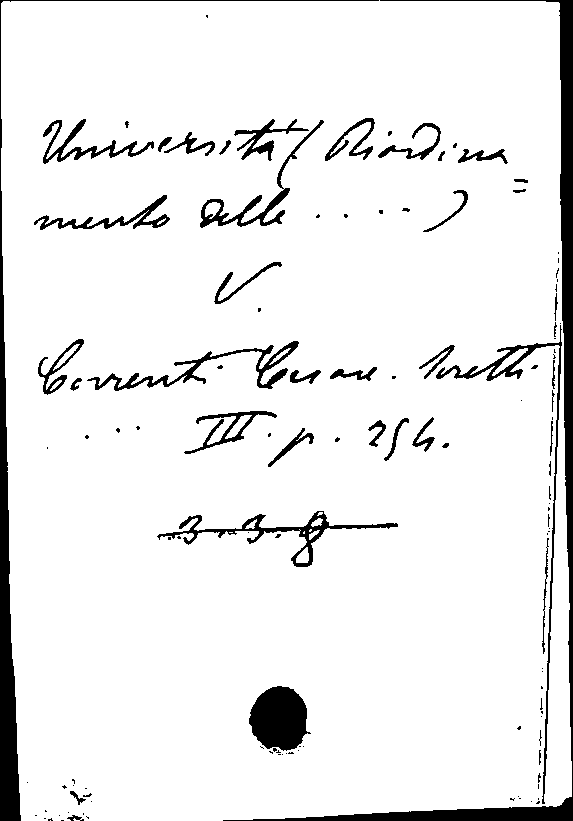 Università (Riordina=
mento delle .....)
V.
Correnti Cesare. Scritti
.... III. p. 254.
3.3.8